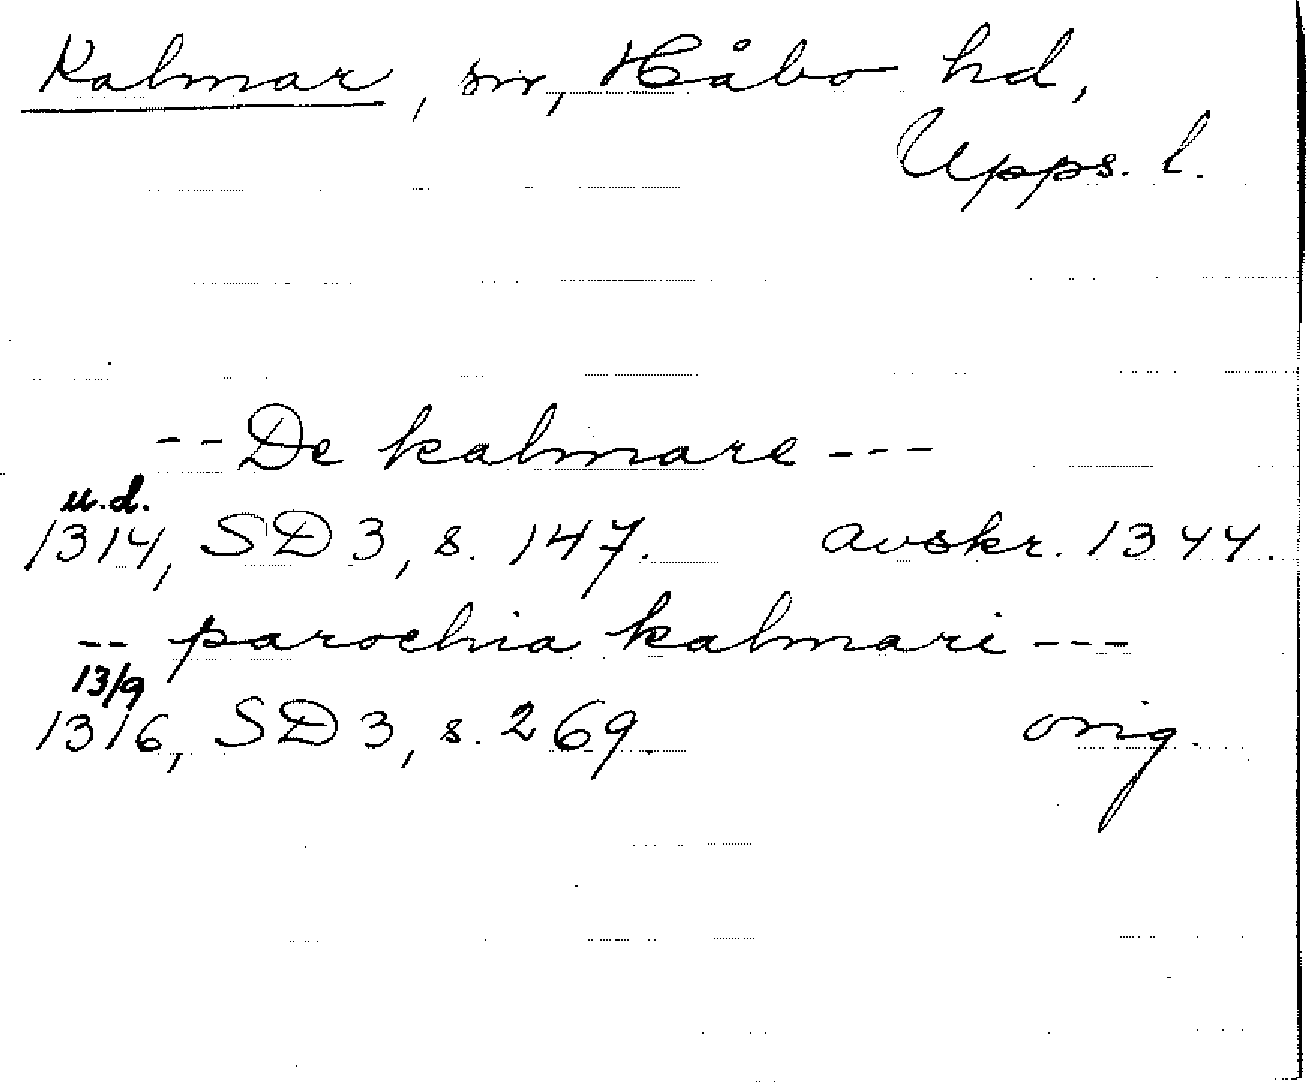 Kalmar, sn, Håbo hd,
Upps. l.
-- De kalmare ---
u.d.
1314, SD 3, s. 147. avskr. 1344.
-- parochia kalmari ---
13/9
1316, SD 3, s. 269. orig.